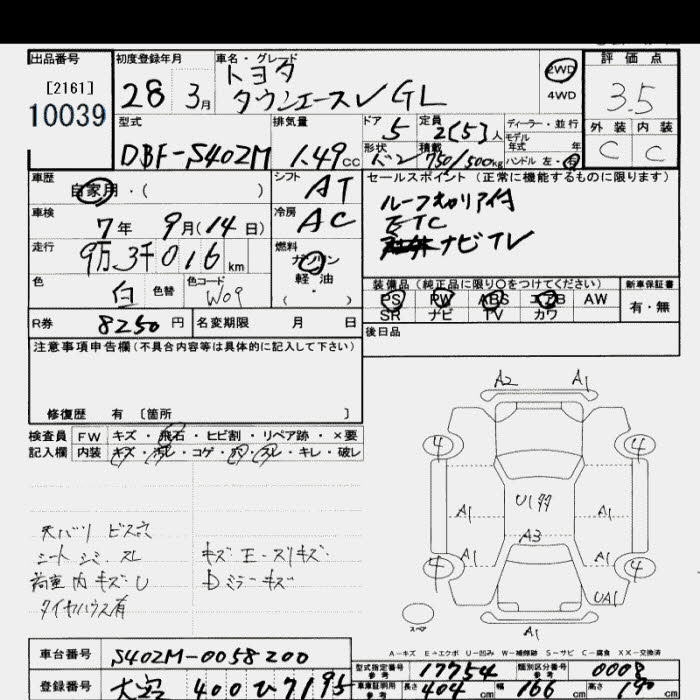 出品番号
[2161]
10039
初度登録年月
28 3月
車名・グレード
トヨタ
タウンエースV GL
2WD
4WD
評価点
3.5
外装 内装
C C
型式
DBF-S402M
排気量
1.49 cc
ドア 5
定員 2(5)人
ディーラー・並行
モデル年式 年
形状 バン
積載 750/500kg
ハンドル 左・右
車歴
自家用・( )
シフト
AT
セールスポイント(正常に機能するものに限ります)
ETC
ナビTV
車検
7年 9月(14日)
冷房
AC
走行
9万3千016 km
燃料
ガソリン
軽油
( )
色
白
色替
色コード
W09
装備品(純正品に限り○をつけてください)
PS PW ABS エアB AW
SR ナビ TV カワ
新車保証書
有・無
R券 8250円
名変期限 月 日
後日品
注意事項申告欄(不具合内容等は具体的に記入して下さい)
修復歴 有 〔箇所 〕
検査員
記入欄
FW キズ・飛石・ヒビ割・リペア跡・×要
内装 キズ・汚レ・コゲ・穴・スレ・キレ・破レ
天バリ ビス穴
シート シミ・スレ
荷室内キズU
タイヤハウス有
Dミラーキズ
A2 A1
4 4
U1
A1 A1
A3
A1 A1
4 4
UA1
スペア
A1
A-キズ E-エクボ U-凹み W-補修跡 S-サビ C-腐食 XX-交換済
車台番号 S402M-0058200
型式指定番号 参考 17754
類別区分番号 参考 0008
登録番号 大宮 400 ひ 7195
車庫証明用 参考 長さ 404 cm 幅 166 cm 高さ 190 cm